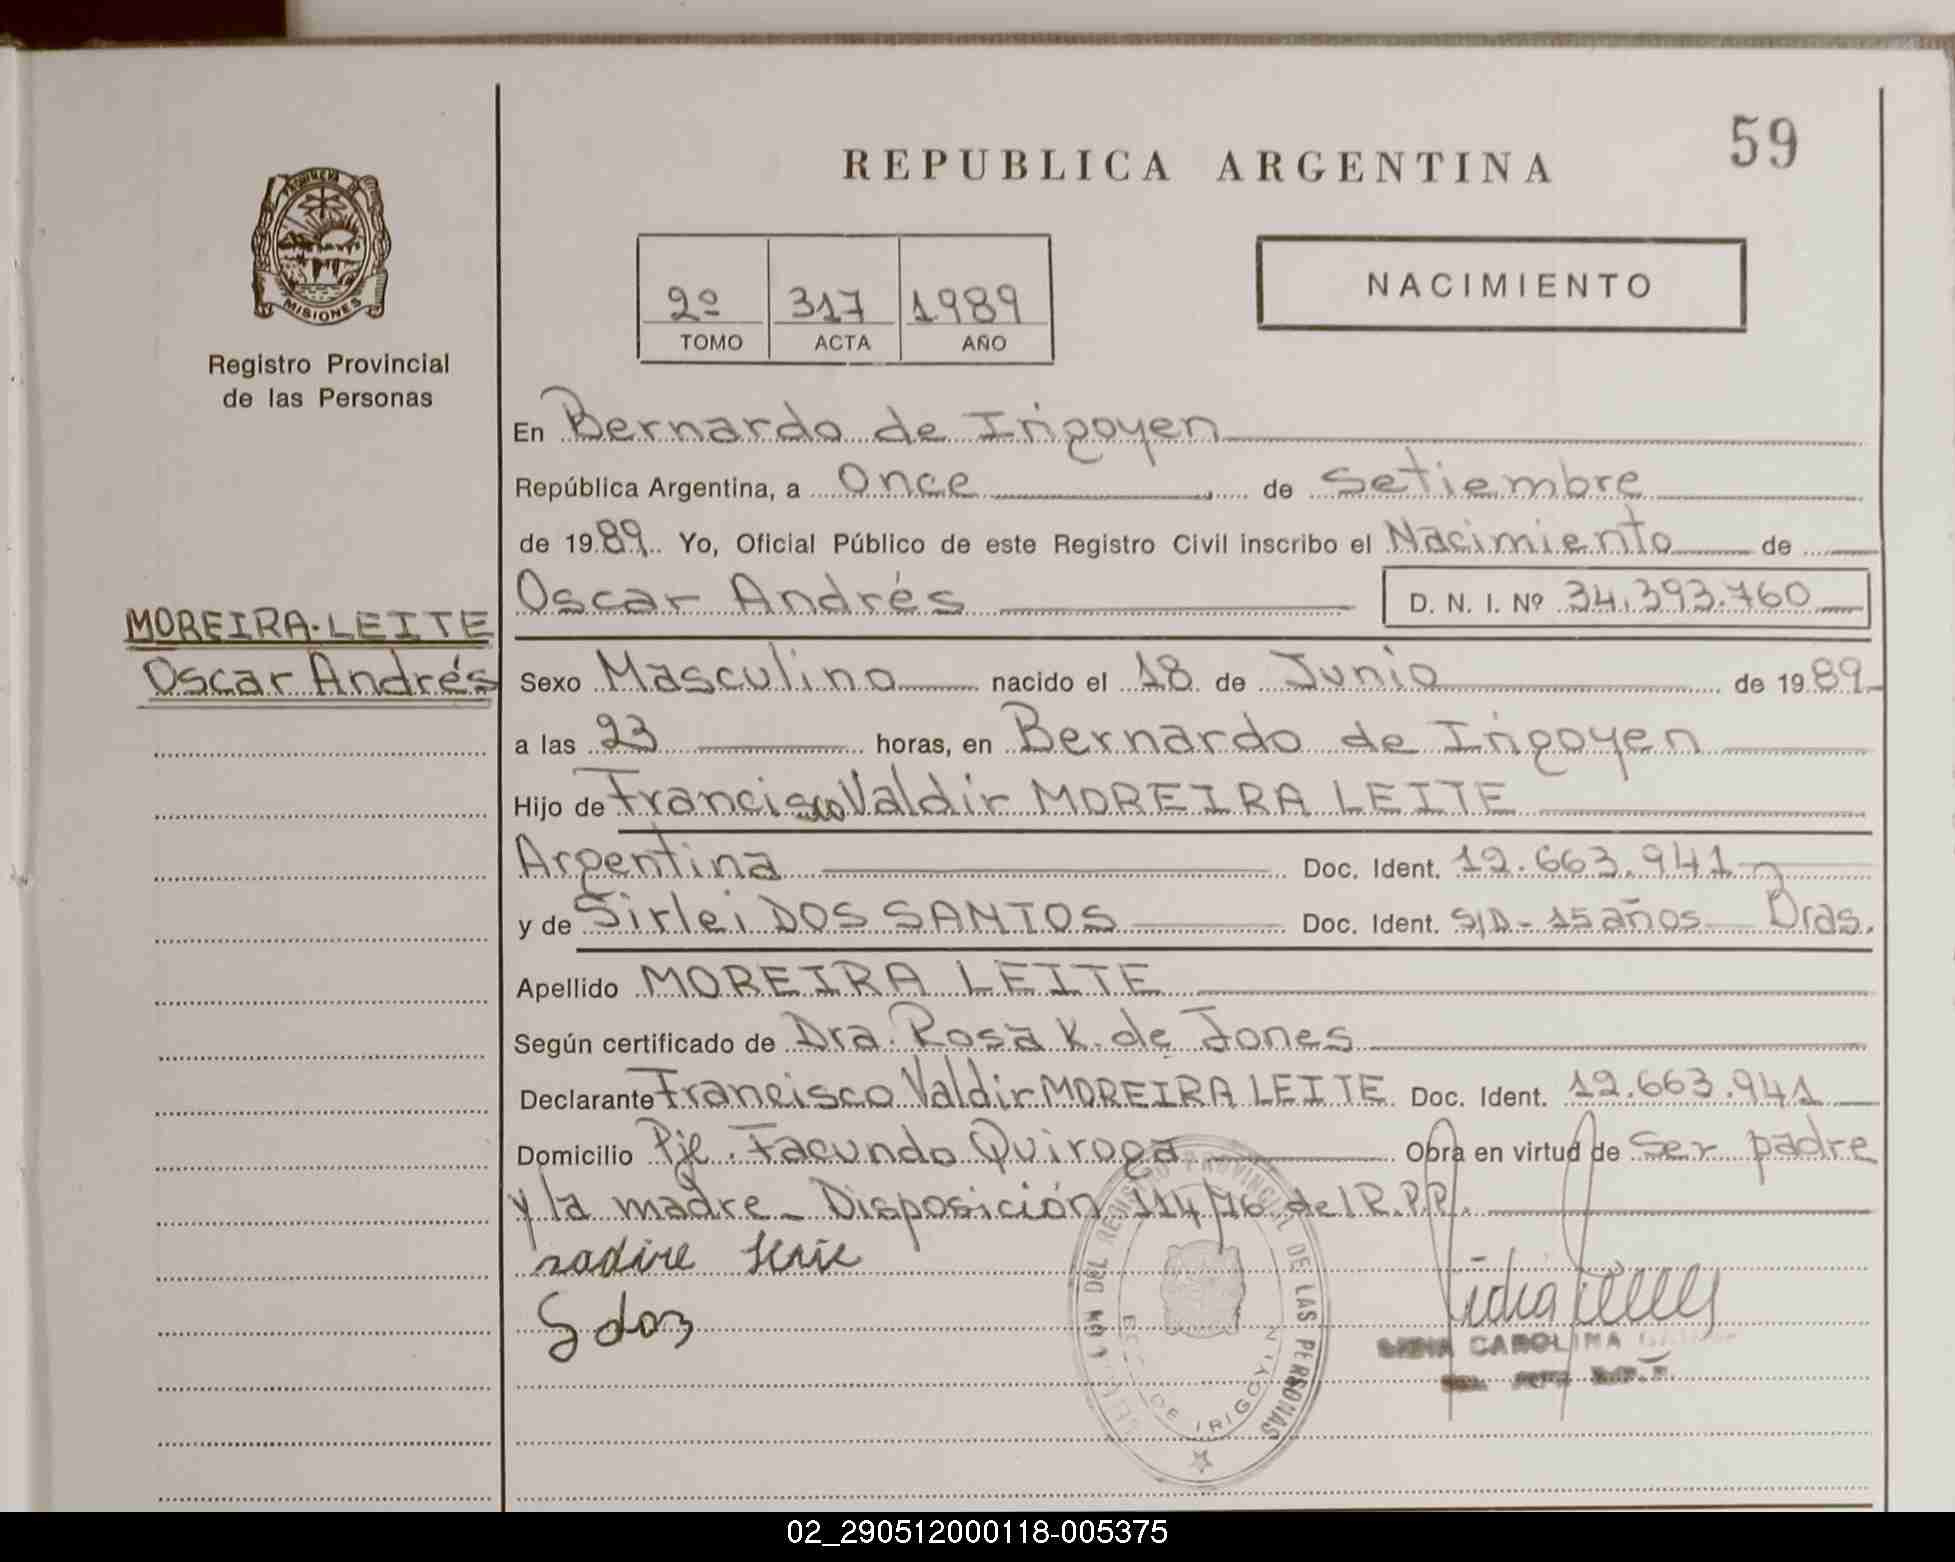 59
REPUBLICA ARGENTINA
PROVINCIA DE
MISIONES
Registro Provincial
de las Personas
2º 317 1989
TOMO ACTA AÑO
NACIMIENTO
En Bernardo de Irigoyen
República Argentina, a Once de Setiembre
de 1989. Yo, Oficial Público de este Registro Civil inscribo el Nacimiento de
Oscar Andrés D. N. I. Nº 34.393.760
MOREIRA-LEITE
Oscar Andrés
Sexo Masculino nacido el 18 de Junio de 1989
a las 23 horas, en Bernardo de Irigoyen
Hijo de Francisco Valdir MOREIRA LEITE
Argentina Doc. Ident. 12.663.941
y de Sirlei DOS SANTOS Doc. Ident. S/D - 15 años Bras.
Apellido MOREIRA LEITE
Según certificado de Dra. Rosa K. de Jones
Declarante Francisco Valdir MOREIRA LEITE Doc. Ident. 12.663.941
Domicilio Pje. Facundo Quiroga Obra en virtud de ser padre
y la madre - Disposición 114/76 del R.P.P.
DEL REGISTRO PROVINCIAL DE LAS PERSONAS
DE IRIGOYEN
CAROLINA
02_290512000118-005375